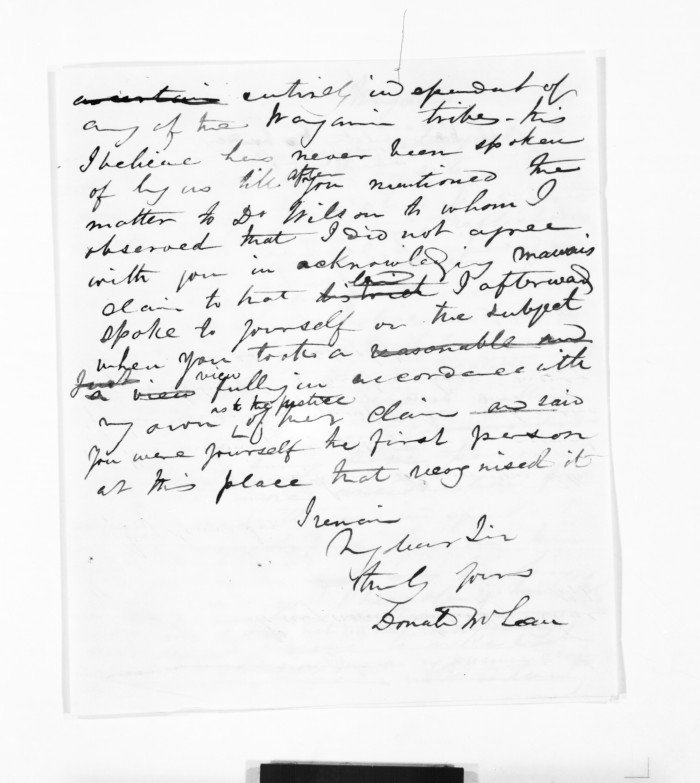 ~~ascertain~~ entirely independent of
any of the Waiganui tribes - this
I believe has never been spoken
of by us till after you mentioned the
matter to Dr Wilson to whom I
observed that I did not agree
with you in acknowledging mawais
claim to that ~~district~~ land I afterwards
spoke to yourself on the subject
when you took a ~~reasonable and~~
~~Just~~ ~~a view~~ view fully in accordance with
my own as to the justice of her claim ~~and said~~
You were yourself the first person
at this place that recognised it
I remain
My dear Sir
truly yours
Donald McLean